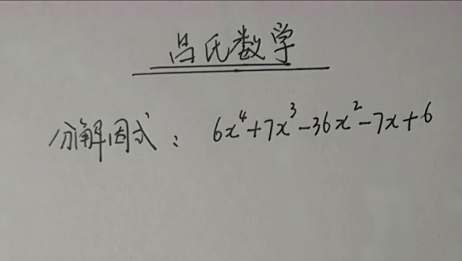 吕氏数学
分解因式： 6x⁴+7x³-36x²-7x+6